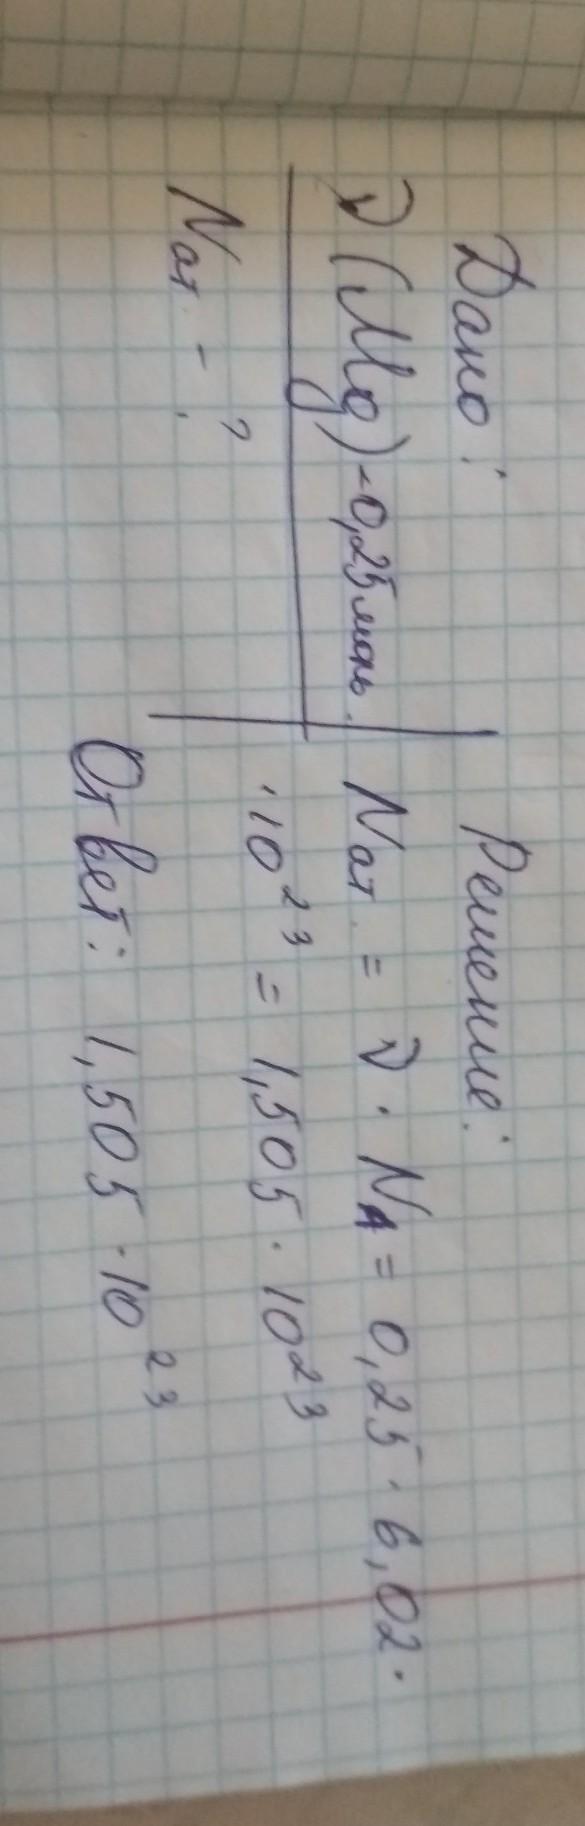 Дано:
ν(Mg)-0,25моль.
Nат. - ?
Решение:
Nат. = ν · NA = 0,25 · 6,02 ·
· 10²³ = 1,505 · 10²³
Ответ: 1,505 · 10²³